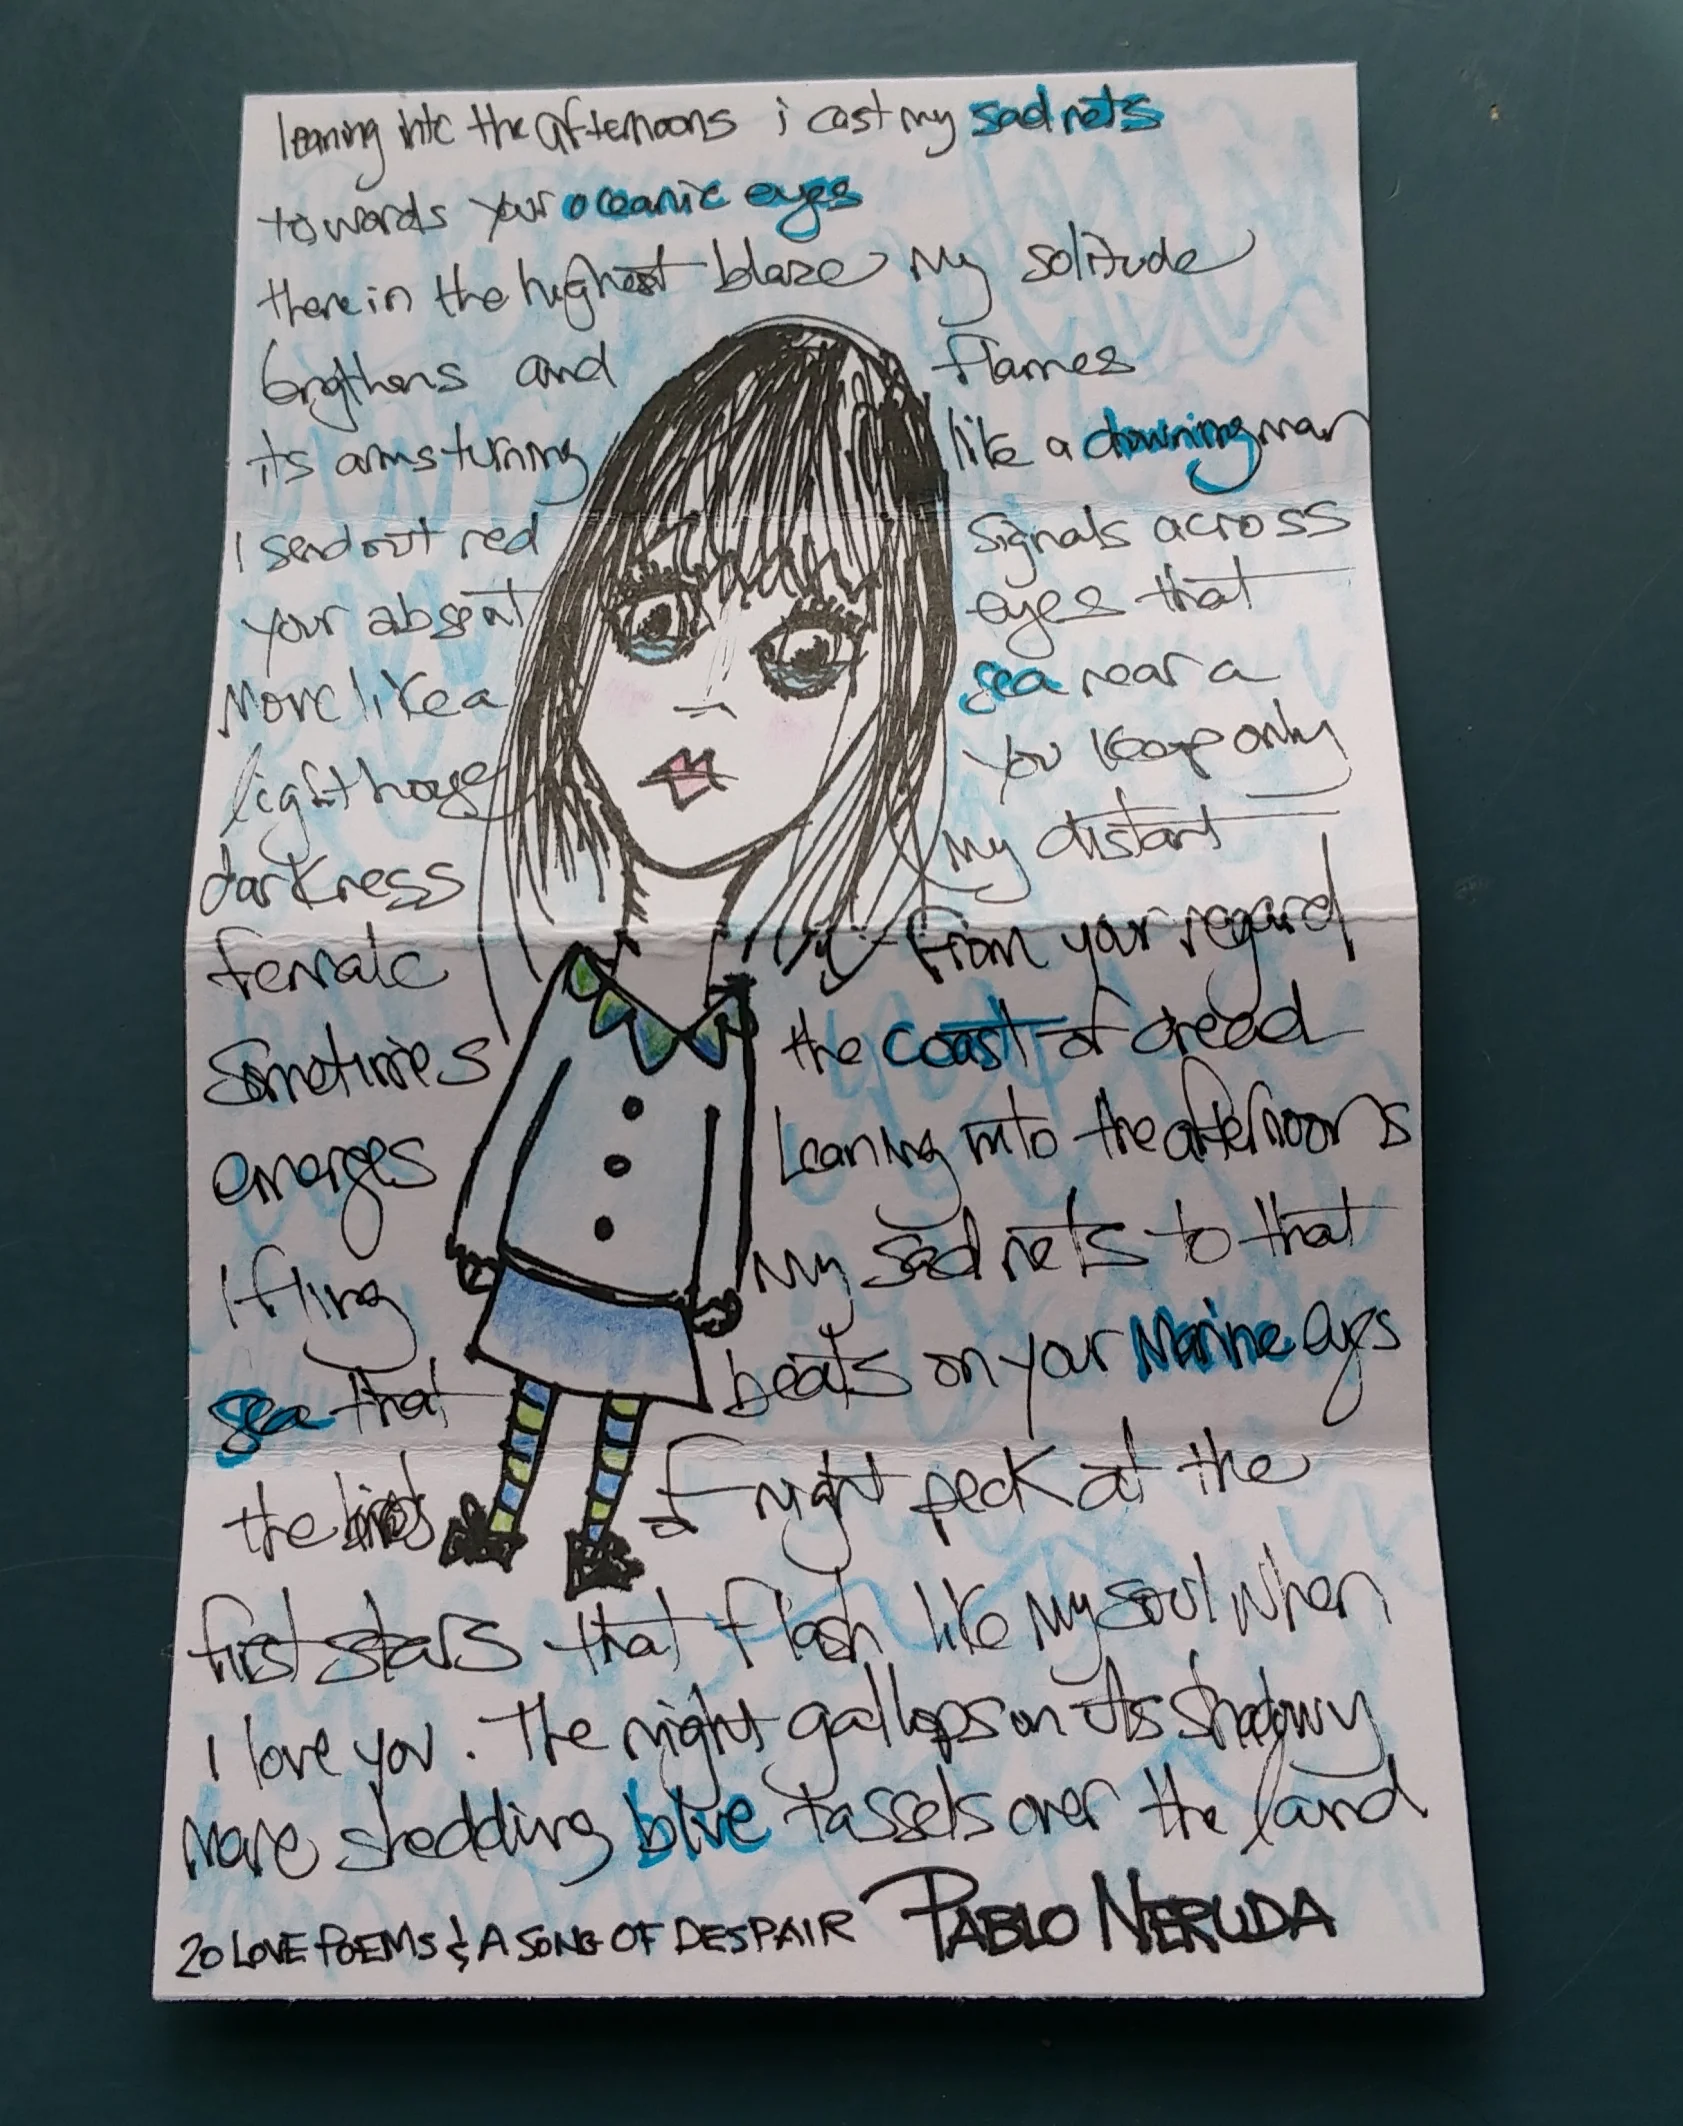 leaning into the afternoons i cast my sad nets
towards your oceanic eyes
there in the highest blaze my solitude
lengthens and flames
its arms turning like a drowning man
I send out red signals across
your absent eyes that
move like a sea near a
lighthouse you keep only
darkness my distant
female from your regard
sometimes the coast of dread
emerges Leaning into the afternoons
I fling my sad nets to that
sea that beats on your Marine eyes
the birds of night peck at the
first stars that flash like my soul when
I love you. The night gallops on its shadowy
mare shedding blue tassels over the land
20 LOVE POEMS & A SONG OF DESPAIR PABLO NERUDA